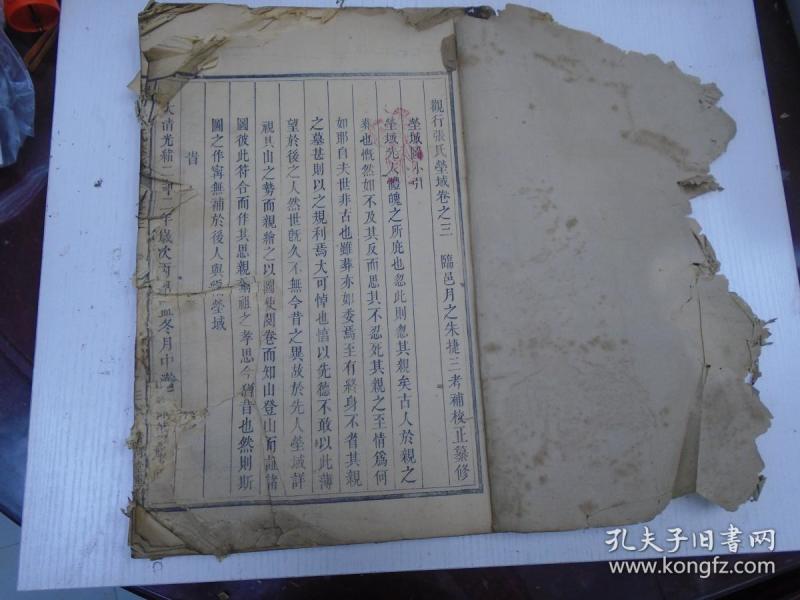 觀行張氏塋域卷之三 臨邑月之朱捷三考補校正纂修
塋域圖小引
塋域先人體魄之所庇也忽此則忽其親矣古人於親之
葬也慨然如不及其反而思其不忍死其親之至情為何
如耶自夫世非古也雖葬亦如委焉至有終身不省其親
之墓甚則以之規利焉大可悼也愔以先德不敢以此薄
望於後之人然世既久不無今昔之異故於先人塋域詳
視其山之勢而親繪之以圖使閱卷而知山登山而證諸
圖彼此符合而作其思親之孝思今猶昔也然則斯
圖之作寧無補於後人與 塋域
大清光緒二十二年歲次丙申 冬月中
孔夫子旧書网
www.kongfz.com